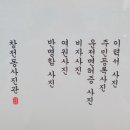 이력서 사진
주민등록사진
운전면허증 사진
비자사진
여권사진
반명함 사진
창전동사진관